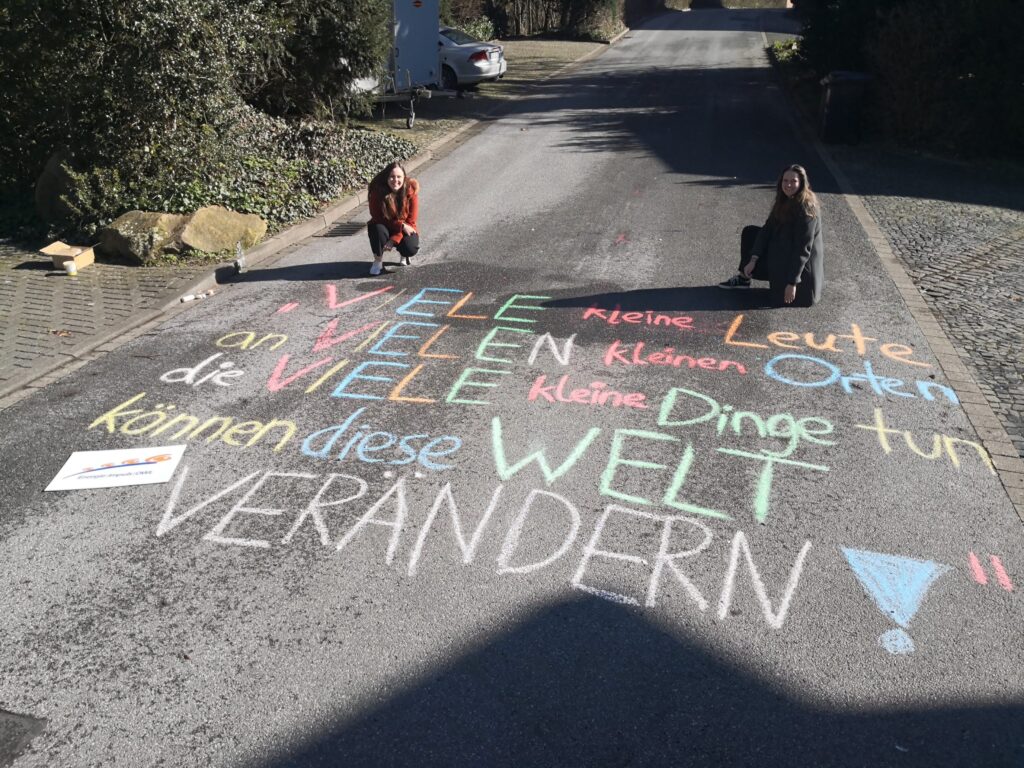 „VIELE kleine Leute
an VIELEN kleinen Orten,
die VIELE kleine Dinge tun
können diese WELT
VERÄNDERN!"
Energie Impuls OWL